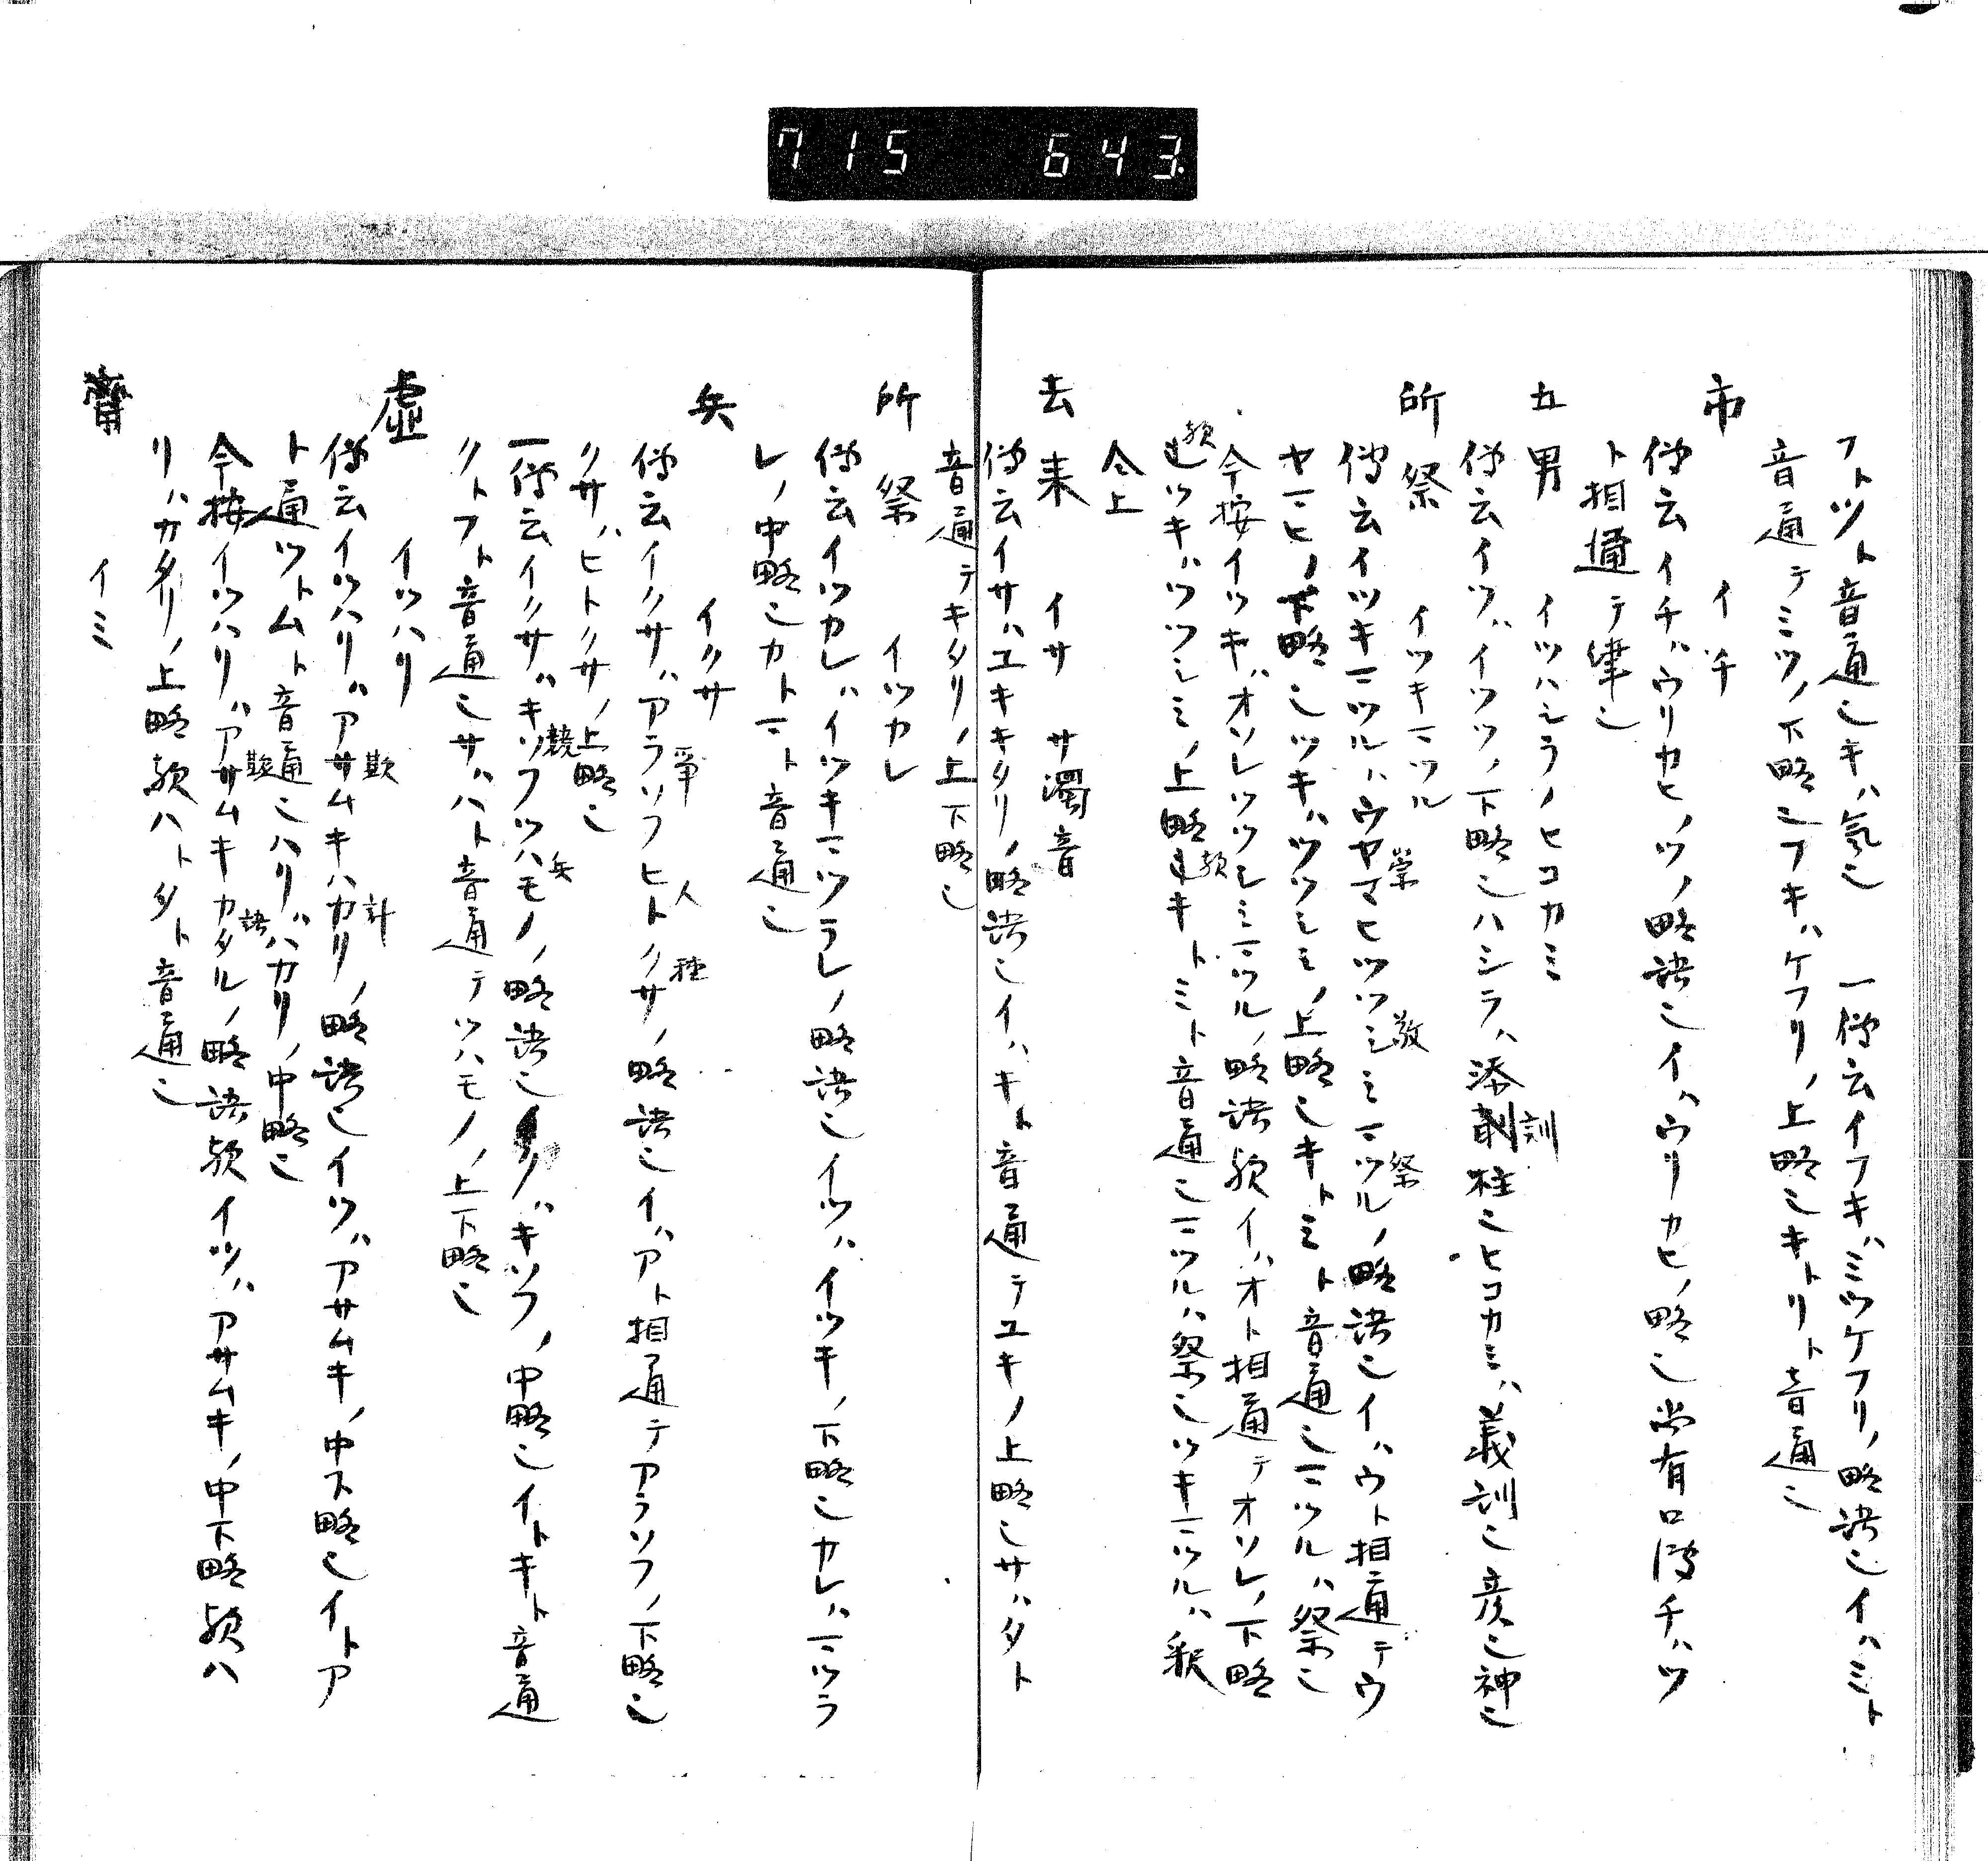 715 643
フトツト音通也キハ気也 一傳云イフキハミツケフリノ略語也イハミト
音通テミツノ下略也フキハケフリノ上略也キトリト音通也
市 イチ
傳云イチハウリカヒノツノ略語也イハウリカヒノ略也尚有口傳チハツ
ト相通テ津也
五男 イツハシラノヒコカミ
傳云イツハイツツノ下略也ハシラハ添訓柱也ヒコカミハ義訓也彦也神也
所祭 イツキマツル
傳云イツキマツルハウヤマヒツツシミマツルノ略語也イハウト相通テウ
崇 敬 祭
ヤマヒノ下略也ツキハツツシミノ上略也キトミト音通也マツルハ祭也
今按イツキハオソレツツシミマツルノ略語歟イハオト相通テオソレノ下略
歟ツキハツツシミノ上略歟キトミト音通也マツルハ祭也ツキマツルハ釈
仝上
去来 イサ サ濁音
傳云イサハユキキタリノ略語也イハキト音通テユキノ上略也サハタト
音通テキタリノ上下略也
所祭 イツカレ
傳云イツカレハイツキマツラレノ略語也イツハイツキノ下略也カレハマツラ
レノ中略也カトマト音通也
兵 イクサ
傳云イクサハアラソフヒトクサノ略語也イハアト相通テアラソフノ下略也
爭 人 種
クサハヒトクサノ上略也
一傳云イクサハキソフツハモノノ略語也イクハキソフノ中略也イトキト音通
競 兵
クトフト音通也サハハト音通テツハモノノ上下略也
虚 イツハリ
傳云イツハリハアサムキハカリノ略語也イツハアサムキノ中下略也イトア
欺 計
ト通ツトムト音通也ハリハハカリノ中略也
今按イツハリハアサムキカタルノ略語歟イツハアサムキノ中下略歟ハ
欺 語
リハカタリノ上略歟ハトタト音通也
齋 イミ